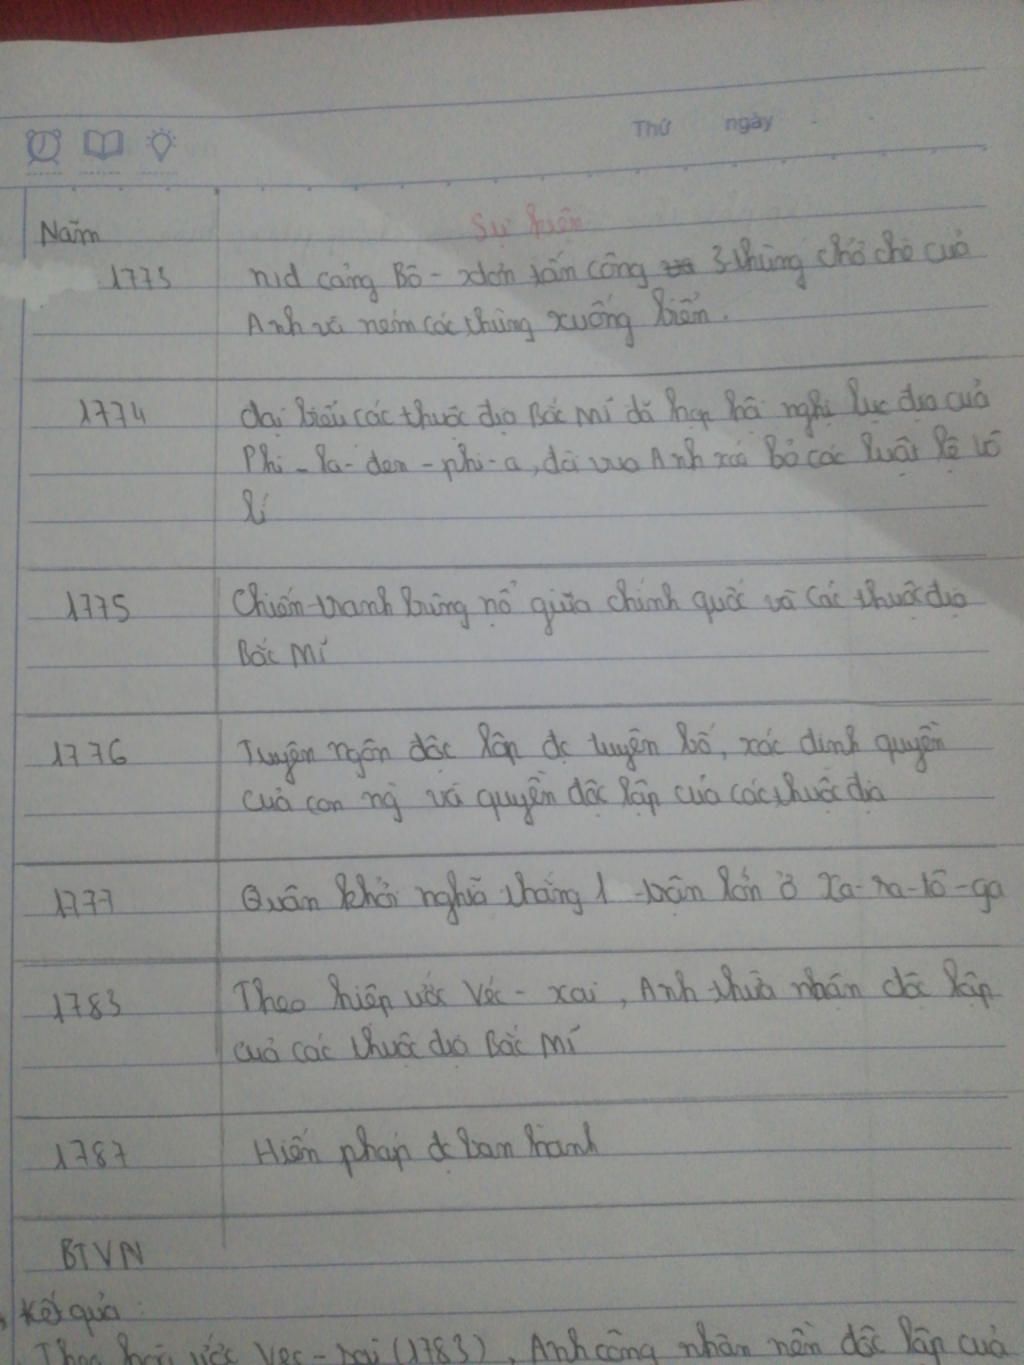 Thứ ngày
Năm Sự kiện
1773 nd cảng Bô - xtơn tấn công 3 thùng chở chè của
Anh và ném các thùng xuống biển.
1774 đại biểu các thuộc địa Bắc Mĩ đã họp hội nghị lục địa của
Phi - la - đen - phi - a, đòi vua Anh xoá bỏ các luật lệ vô
lí
1775 Chiến tranh bùng nổ giữa chính quốc và các thuộc địa
Bắc Mĩ
1776 Tuyên ngôn độc lập đc tuyên bố, xác định quyền
của con ng và quyền độc lập của các thuộc địa
1777 Quân khởi nghĩa thắng 1 trận lớn ở Xa - ra - tô - ga
1783 Theo hiệp ước Véc - xai, Anh thừa nhận độc lập
của các thuộc địa Bắc Mĩ
1787 Hiến pháp đc ban hành
BTVN
Kết quả :
Theo ước Vec - xai (1783), Anh công nhận nền độc lập của